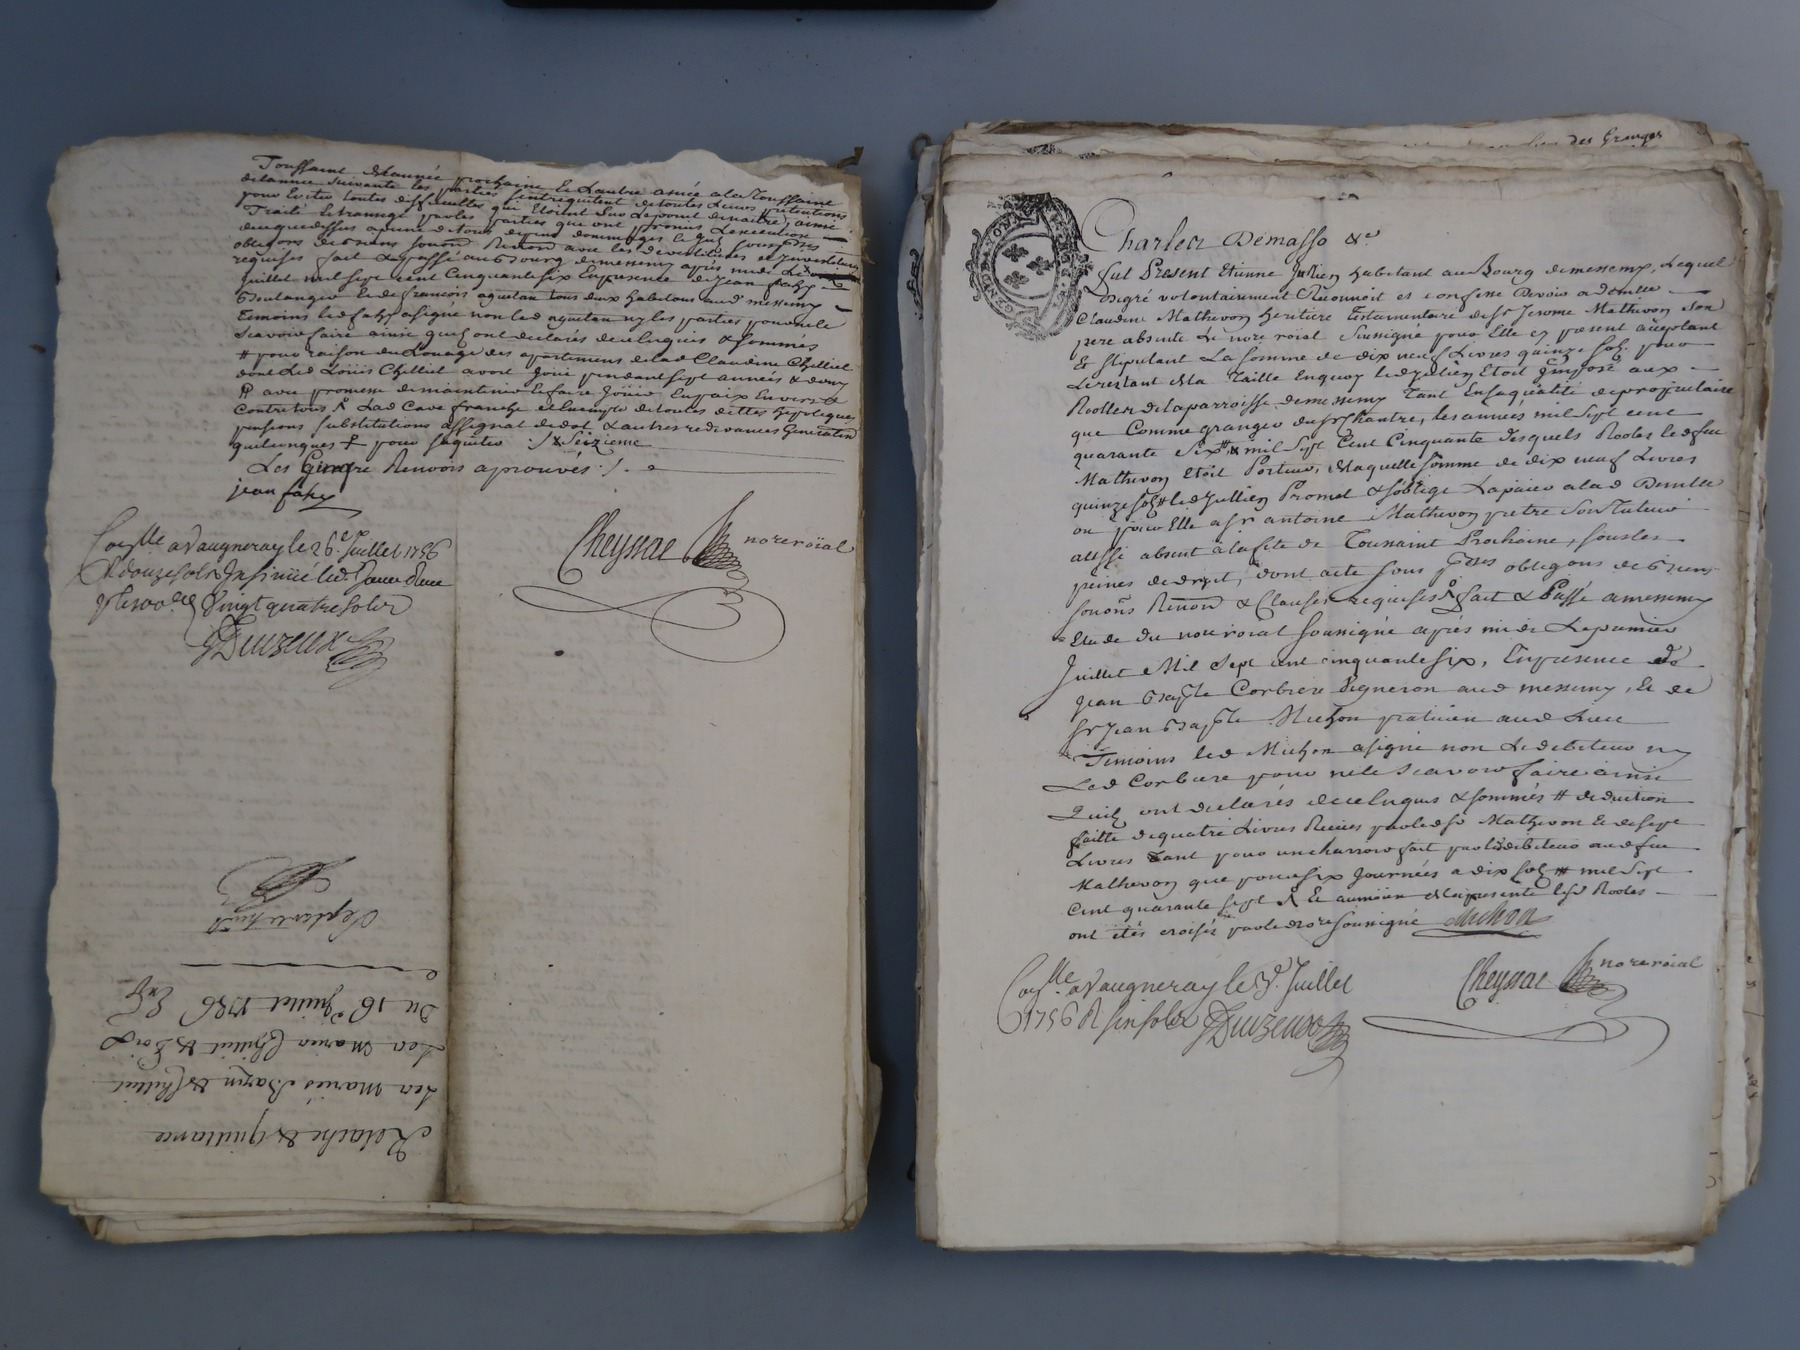 Toussaint de lannée prochaine Et Lautre année a la Toussaint
de lannée suivante les parties sentrequittent detoutes Leurs prétentions
pour Eviter toutes difficultés qui Etoient Sur Le point de naitre, ainsi
Traité Et transigé par les parties qui ont promis Lexecution
obligons de biens soum Renon avec les devestitures et Investitures
requises fait & passé au bourg demessemy après midi Le
juillet mil sept cent Cinquante six En presence de jean fahy
Boulanger Et de francois aguetan tous deux habitans aud messemy
Temoins led fahy asigné non led aguetan ny les parties pour ne le
Scavoir faire ainsi quils ont declarés de ce Enquis & sommés
# pour raison du Louage des apartemens delad Claudine Chelliel
dont Led Loüis Chelliel avoit Joüi pendant sept années & demy
avec promesse demaintenir Et faire Joüir En paix Envers &
Contre tous Lad Cave franche et Exempte detoutes dettes hipoteques
pensions substitutions assignat de dot & autres redevances Generallem
quelconques pour saquitter Seizieme
Les Cinq Renvois aprouvés
jean fahy
Coll le a Vaugneray le 26e Juillet 1756
R douze sols Insinüé led. Jour
Vingt quatre sols
Cheyssac no re roïal
Duvzeux
Relache & Quittance
Les mariés Bazin & Chilliet
Les mariés Chilliet &
Du 16e Juillet 1756
Exp
des Granges
Charles Demasso &a
fut Present Etienne Jullien habitant au Bourg demessemy, Lequel
degré volontairement Reconnoit et confesse Devoir a Demlle
Claudine Mathevon heritiere testamentaire de sr Jerome Mathevon son
pere absente Le no re roial Soussigné pour Elle cy present acceptant
Et Stipulant La somme de dix neuf Livres quinze sols pour
Le restant de la Taille En quoy led Jullien Etoit Imposé aux
Rolles de la parroisse demessemy tant En saqualité de propriétaire
que Comme granger du sr Chantre, les années mil sept cent
quarante six # & mil sept Cent Cinquante desquels Rooles led feu
Mathevon Etoit Porteur, de laquelle somme de dix neuf Livres
quinze sols led Jullien Promet & soblige La païer a lad Demlle
ou pour Elle a sr antoine Mathevon pretre son Tuteur
aussi absent a la fete de Toussaint Prochaine, sous les
peines de droit, dont acte sous sses obligons de biens
soum Renon & Clauses requises fait & Passé a messemy
Etude du no re roial soussigné après midi Le premier
Juillet Mil Sept cent cinquante six, En presence de
Jean Baptte Corbiere Vigneron aud messemy, Et de
sr Jean Baptte Michon praticien aud Lieu
Temoins led Michon asigné non Le debiteur ny
Led Corbiere pour ne le scavoir faire ainsi
Quils ont declarés de ce Enquis & sommés # deduction
faitte de quatre Livres Reçues par led sr Mathevon Et de sept
Livres tant pour un charroir fait par led debiteur aud feu
Mathevon que pour six Journées a dix sols # mil sept
Cent quarante sept Et au moïen de la presente lesd Rooles
ont étés croisés par led no re soussigné Michon
Coll le a Vaugneray le 3e. Juillet
1756 R six sols Duvzeux
Cheyssac no re roial